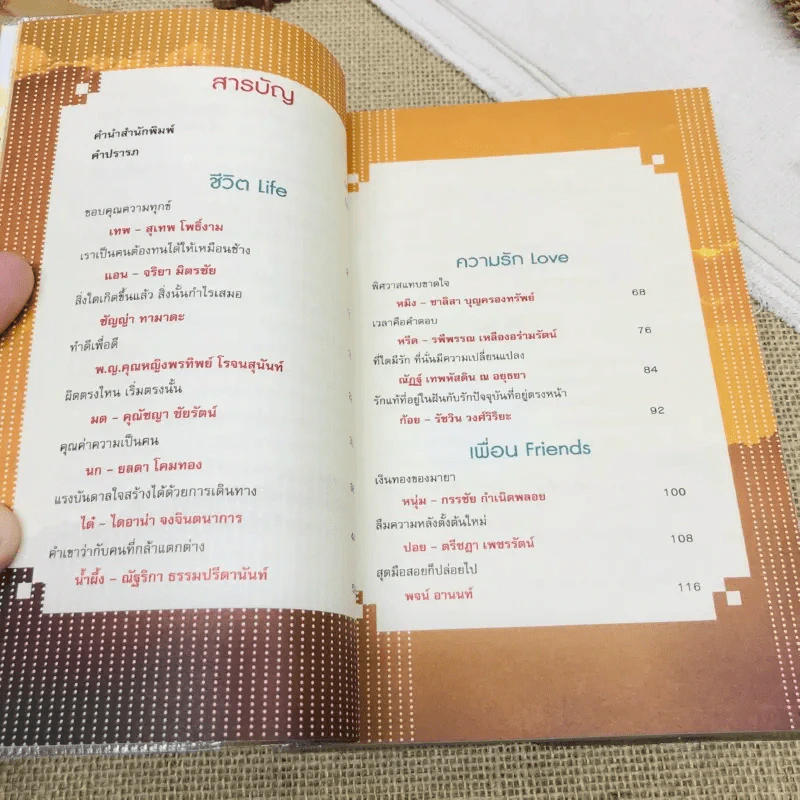 สารบัญ
คำนำสำนักพิมพ์
คำปรารภ
ชีวิต Life
ขอบคุณความทุกข์
เทพ – สุเทพ โพธิ์งาม
เราเป็นคนต้องทนได้ให้เหมือนช้าง
แอน – จริยา มิตรชัย
สิ่งใดเกิดขึ้นแล้ว สิ่งนั้นกำไรเสมอ
ชัญญ่า ทามาดะ
ทำดีเพื่อดี
พ.ญ.คุณหญิงพรทิพย์ โรจนสุนันท์
ผิดตรงไหน เริ่มตรงนั้น
มด – คุณัชญา ชัยรัตน์
คุณค่าความเป็นคน
นก – ยลดา โคมทอง
แรงบันดาลใจสร้างได้ด้วยการเดินทาง
ได๋ – ไดอาน่า จงจินตนาการ
คำเขาว่ากับคนที่กล้าแตกต่าง
น้ำผึ้ง – ณัฐริกา ธรรมปรีดานันท์
ความรัก Love
พิศวาสแทบขาดใจ
หมิง – ชาลิสา บุญครองทรัพย์ 68
เวลาคือคำตอบ
หรีด – รพีพรรณ เหลืองอร่ามรัตน์ 76
ที่ใดมีรัก ที่นั่นมีความเปลี่ยนแปลง
ณัฏฐ์ เทพหัสดิน ณ อยุธยา 84
รักแท้ที่อยู่ในฝันกับรักปัจจุบันที่อยู่ตรงหน้า
ก้อย – รัชวิน วงศ์วิริยะ 92
เพื่อน Friends
เงินทองของมายา
หนุ่ม – กรรชัย กำเนิดพลอย 100
ลืมความหลังตั้งต้นใหม่
ปอย – ตรีชฎา เพชรรัตน์ 108
สุดมือสอยก็ปล่อยไป
พจน์ อานนท์ 116